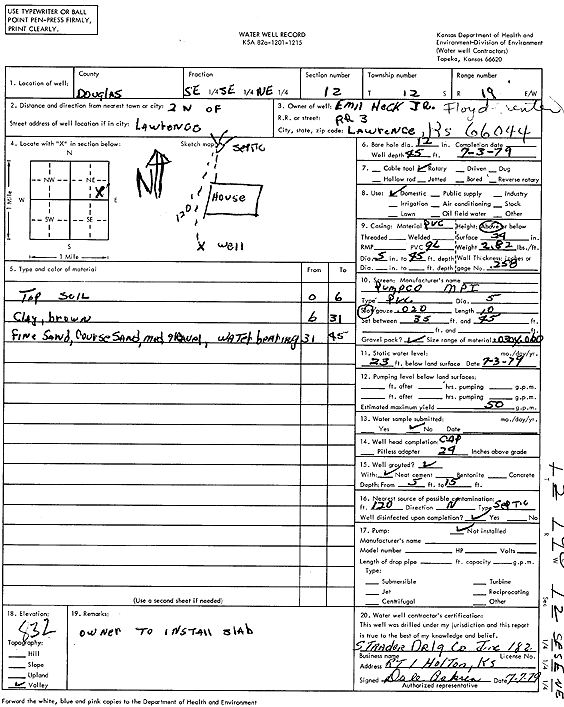 USE TYPEWRITER OR BALL
POINT PEN-PRESS FIRMLY,
PRINT CLEARLY.
WATER WELL RECORD
KSA 82a-1201-1215
Kansas Department of Health and
Environment-Division of Environment
(Water well Contractors)
Topeka, Kansas 66620
1. Location of well: County Douglas Fraction SE 1/4 SE 1/4 NE 1/4 Section number 12 Township number T 12 S Range number R 19 E/W
2. Distance and direction from nearest town or city: 2 N OF
Street address of well location if in city: Lawrence
3. Owner of well: Emil Heck Jr. Floyd
R.R. or street: RR 3
City, state, zip code: Lawrence, Ks 66044
4. Locate with "X" in section below:
N
NW NE
X
W E
SW SE
S
1 Mile
1 Mile
Sketch map:
N
Septic
House
120
X well
5. Type and color of material From To
Top Soil 0 6
Clay, brown 6 31
Fine Sand, Course Sand, med gravel, water bearing 31 45
(Use a second sheet if needed)
6. Bore hole dia. 12 in. Completion date
Well depth 45 ft. 7-3-79
7. Cable tool ✓ Rotary Driven Dug
Hollow rod Jetted Bored Reverse rotary
8. Use: ✓ Domestic Public supply Industry
Irrigation Air conditioning Stock
Lawn Oil field water Other
9. Casing: Material PVC Height: Above or below
Threaded Welded Surface 24 in.
RMP PVC Weight 2.82 lbs./ft.
Dia. 5 in. to 45 ft. depth Wall Thickness: inches or
Dia. in. to ft. depth gage No. .258
10. Screen: Manufacturer's name
Pumpco MPI
Type PVC Dia. 5
Slot/gauze .020 Length 10
Set between 35 ft. and 45 ft.
ft. and ft.
Gravel pack? ✓ Size range of material
11. Static water level: mo./day/yr.
23 ft. below land surface Date 7-3-79
12. Pumping level below land surfaces:
ft. after hrs. pumping g.p.m.
ft. after hrs. pumping g.p.m.
Estimated maximum yield 50 g.p.m.
13. Water sample submitted: mo./day/yr.
Yes ✓ No Date
14. Well head completion: CAP
Pitless adapter 24 Inches above grade
15. Well grouted? ✓
With: ✓ Neat cement Bentonite Concrete
Depth: From 5 ft. to 15 ft.
16. Nearest source of possible contamination:
ft. 120 Direction N Type Septic
Well disinfected upon completion? ✓ Yes No
17. Pump: ✓ Not installed
Manufacturer's name
Model number HP Volts
Length of drop pipe ft. capacity g.p.m.
Type:
Submersible Turbine
Jet Reciprocating
Centrifugal Other
18. Elevation:
832
Topography:
Hill
Slope
Upland
✓ Valley
19. Remarks:
Owner to install slab
20. Water well contractor's certification:
This well was drilled under my jurisdiction and this report
is true to the best of my knowledge and belief.
Strader Drlg Co Inc 182
Business name License No.
Address RT 1 Holton, Ks
Signed Dale Date 7-7-79
Authorized representative
Forward the white, blue and pink copies to the Department of Health and Environment
T 12 R 19 W Sec 12 SE SE NE
1/4 1/4 1/4